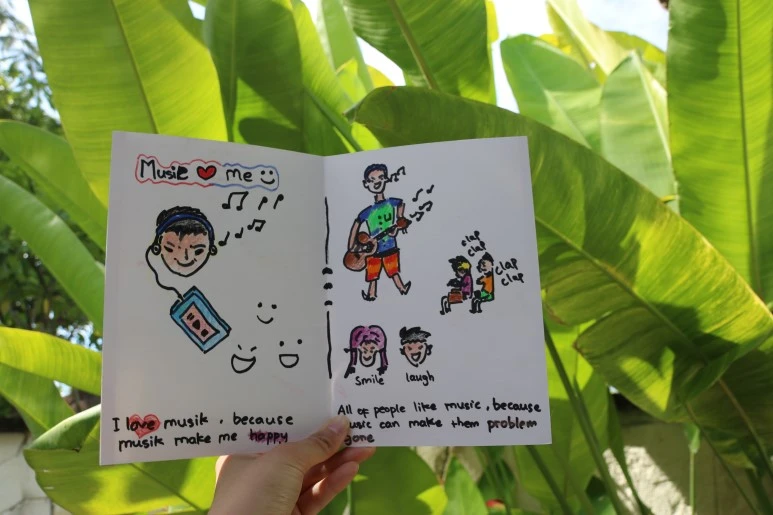 Musik ❤ me
I love musik, because
musik make me happy
clap
clap
clap
clap
smile laugh
All of people like music, because
music can make them problem
gone